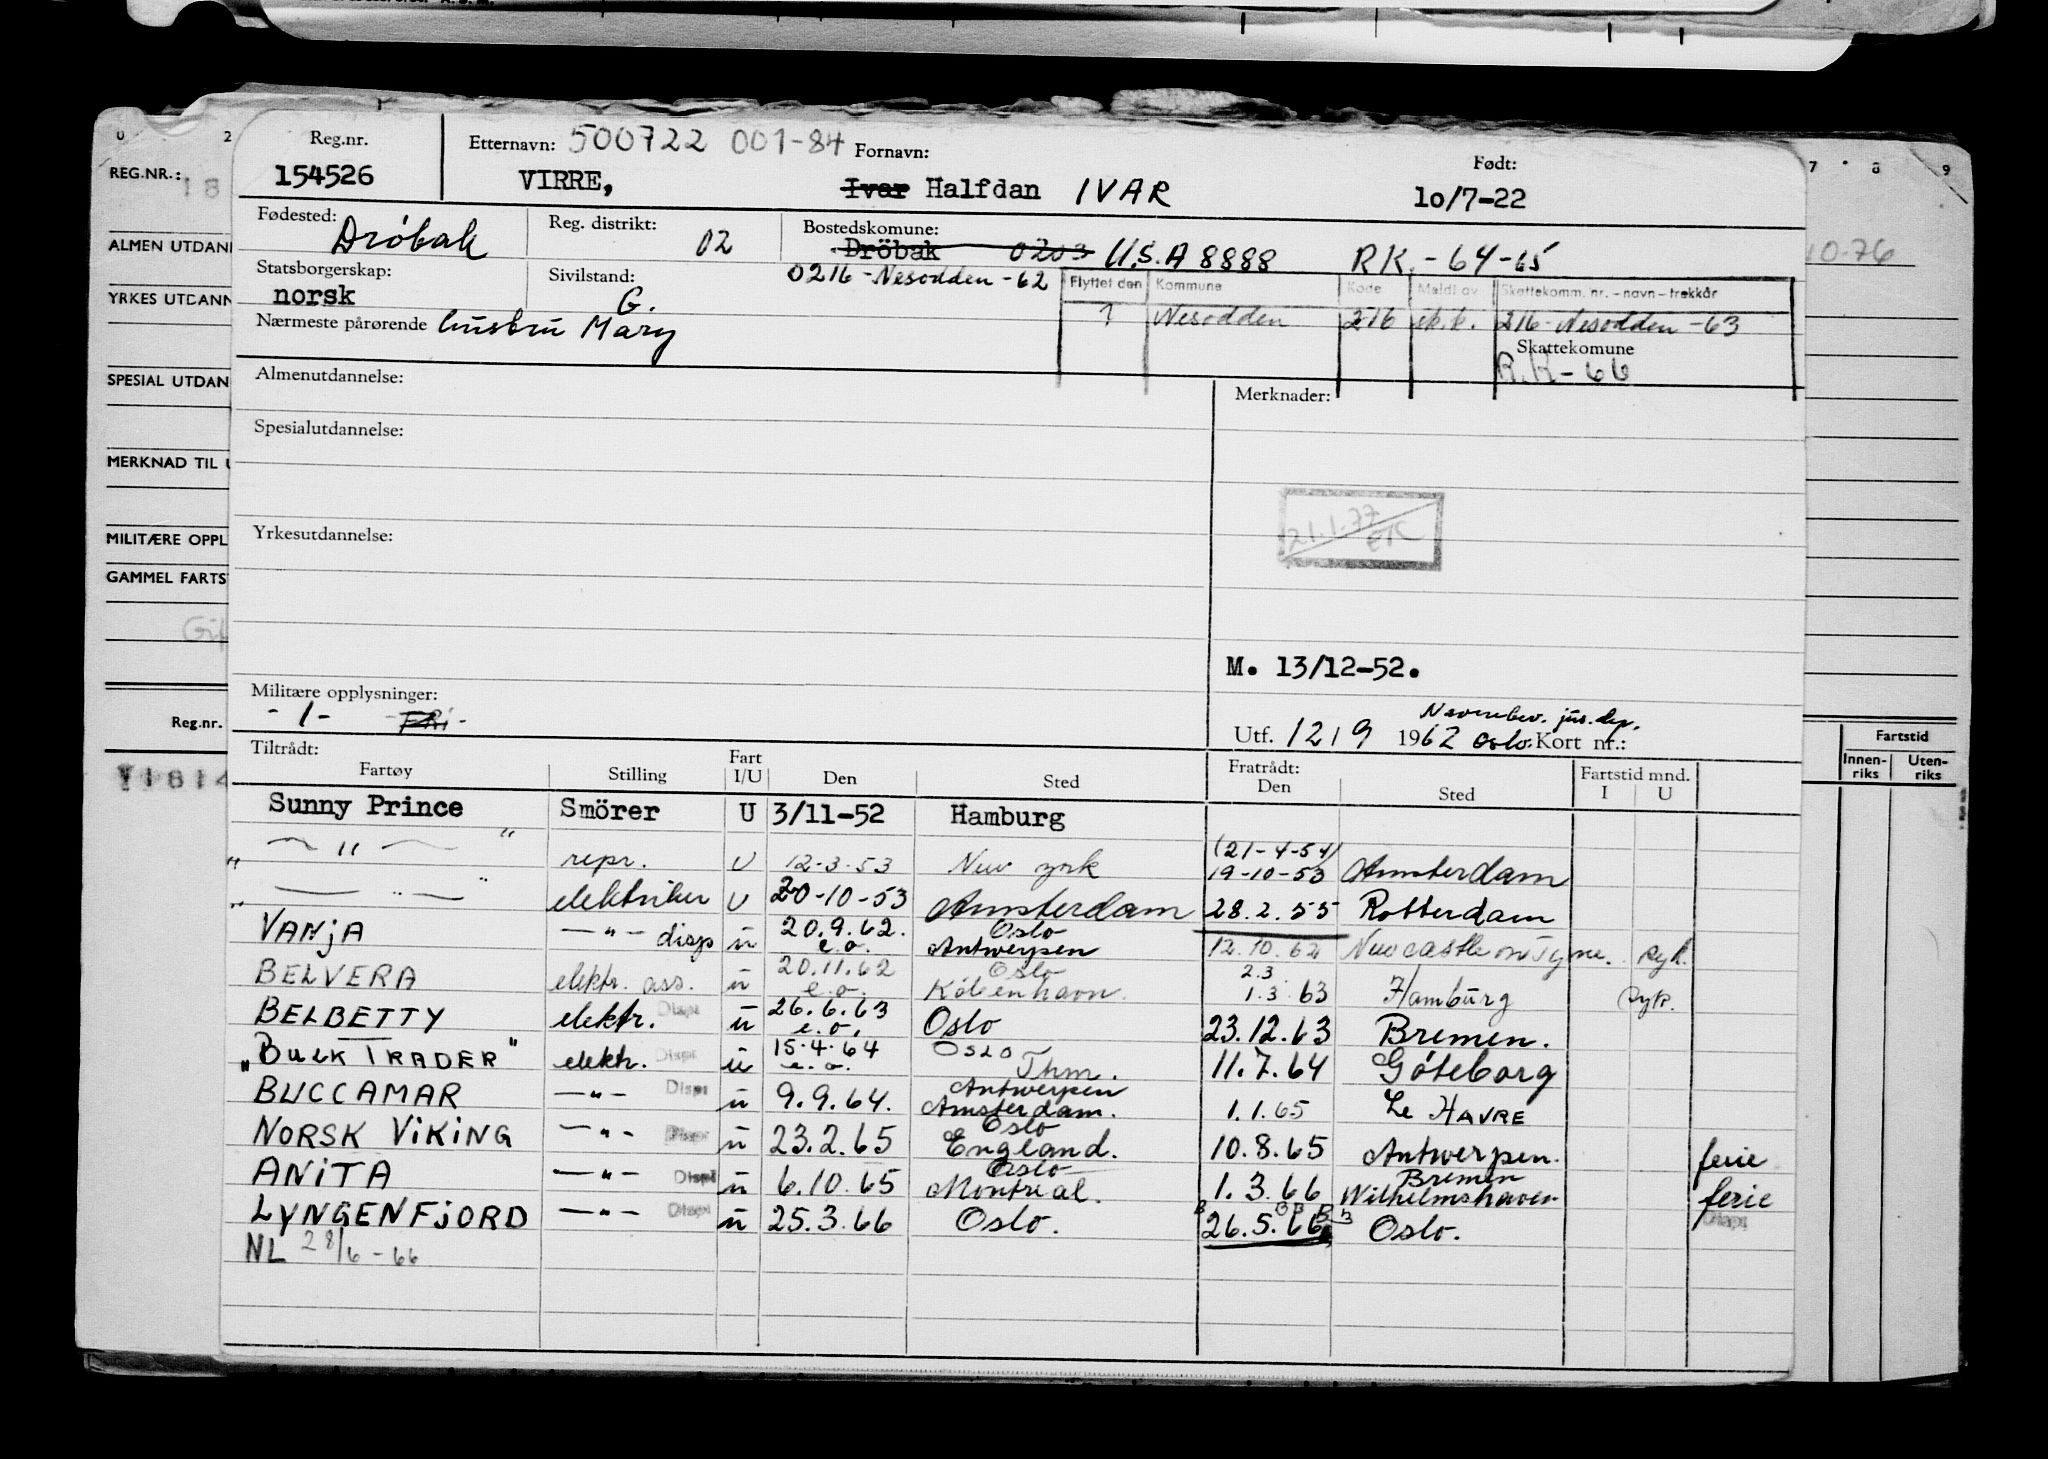 Reg.nr. Etternavn: 500722 001-84 Fornavn: Født:
154526 VIRRE, Ivar Halfdan IVAR 10/7-22
Fødested: Dröbak Reg. distrikt: 02 Bostedskomune: Dröbak 0203 U.S.A 8888 RK.-64-65
Statsborgerskap: norsk Sivilstand: G. 0216-Nesodden-62
Flyttet den Kommune Kode Meldt av Skattekomm. nr.-navn-trekkår
1 Nesodden 216 sk.k. 216-Nesodden-63
Nærmeste pårørende hustru Mary
Skattekomune
R.K-66
Almenutdannelse: Merknader:
Spesialutdannelse:
21.1.77
EK
Yrkesutdannelse:
M. 13/12-52.
Militære opplysninger:
-1- -FRI-
November. jus.dep.
Utf. 12/9 1962 Oslo. Kort nr.:
Tiltrådt: Fratrådt: Fartstid mnd.
Fartøy Stilling Fart I/U Den Sted Den Sted I U
Sunny Prince Smörer U 3/11-52 Hamburg
" — " — " repr. U 12-3-53 New york (21-4-54) 19-10-53 Amsterdam
" — " — " elektriker U 20-10-53 Amsterdam 28.2.55 Rotterdam
VANJA — " — disp u 20.9.62. e.o. Oslo Antwerpen 12.10.62 Newcastle on Tyne. syk.
BELVERA elektr. ass. u 20.11.62 e.o. Oslo København. 2.3 1.3.63 Hamburg syk.
BELBETTY elektr. Disp u 26.6.63 e.o. Oslo 23.12.63 Bremen.
"BULK TRADER" elektr. Disp u 15.4.64 e.o. Oslo Thm. 11.7.64 Göteborg
BUCCAMAR — " — Disp u 9.9.64. Antwerpen Amsterdam. 1.1.65 Le HAVRE
NORSK VIKING — " — Disp u 23.2.65 Oslo England. 10.8.65 Antwerpen. ferie
ANITA — " — Disp u 6.10.65 Oslo Montreal. 1.3.66 Bremen Wilhelmshaven ferie
LYNGENFJORD — " — Disp u 25.3.66 Oslo. 26.5.66 Oslo. Disp
NL 28/6-66
0 2
REG.NR.: 18
ALMEN UTDAN
YRKES UTDANN
SPESIAL UTDAN
MERKNAD TIL U
MILITÆRE OPPL
GAMMEL FARTS
Reg.nr.
11814
7 8 9
10-76
Fartstid
Innen-riks Uten-riks